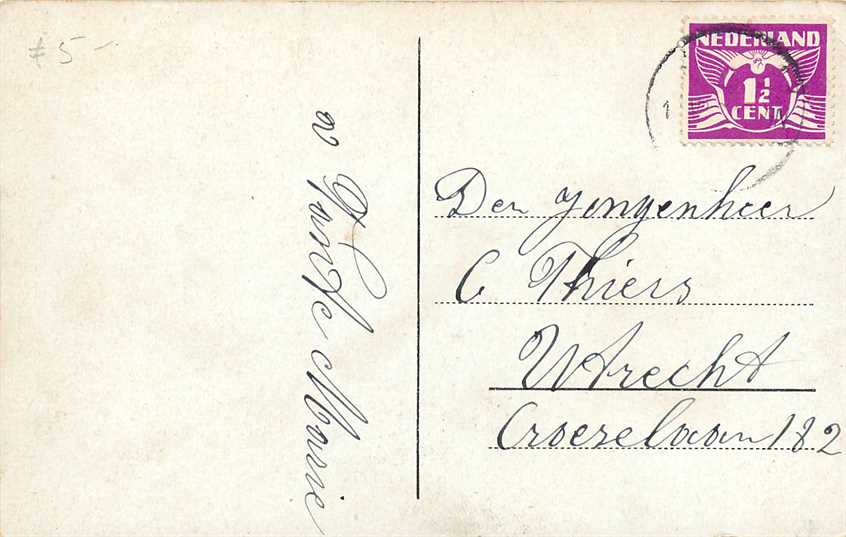 f 5 -
NEDERLAND
1 1/2
CENT
v Tante Marie
Den Jongenheer
C Thiers
Utrecht
Croeselaan 182